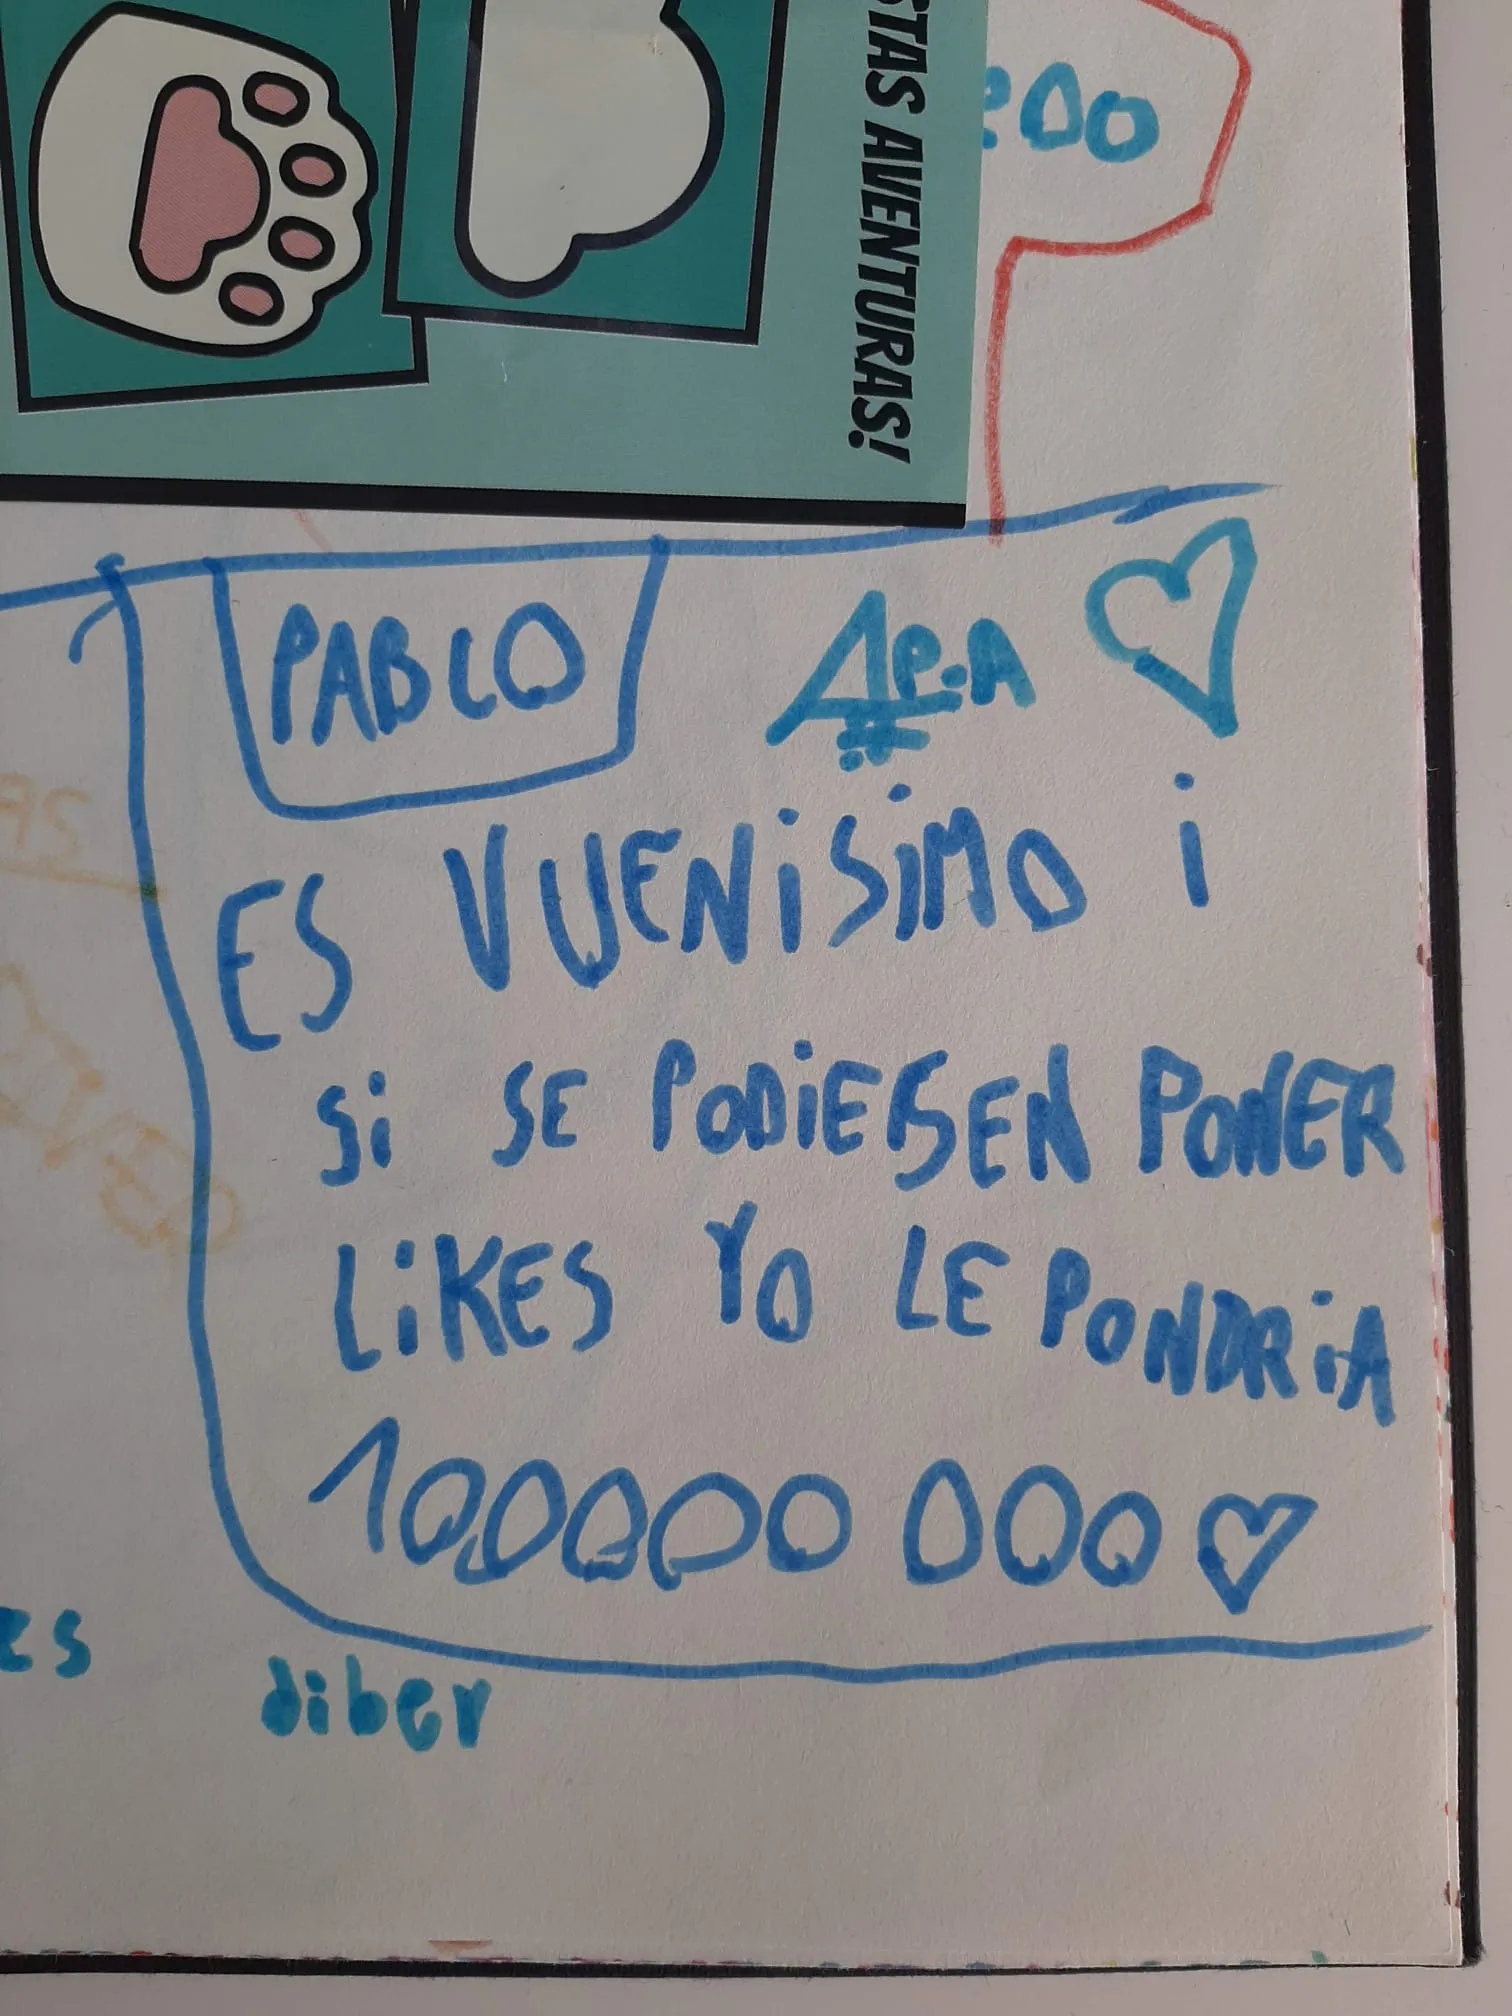 STAS AVENTURAS!
DO
PABLO
ES VUENiSiMO i
Si SE PODiESEN PONER
LiKES YO LE PONDRiA
100000 000
es
diber